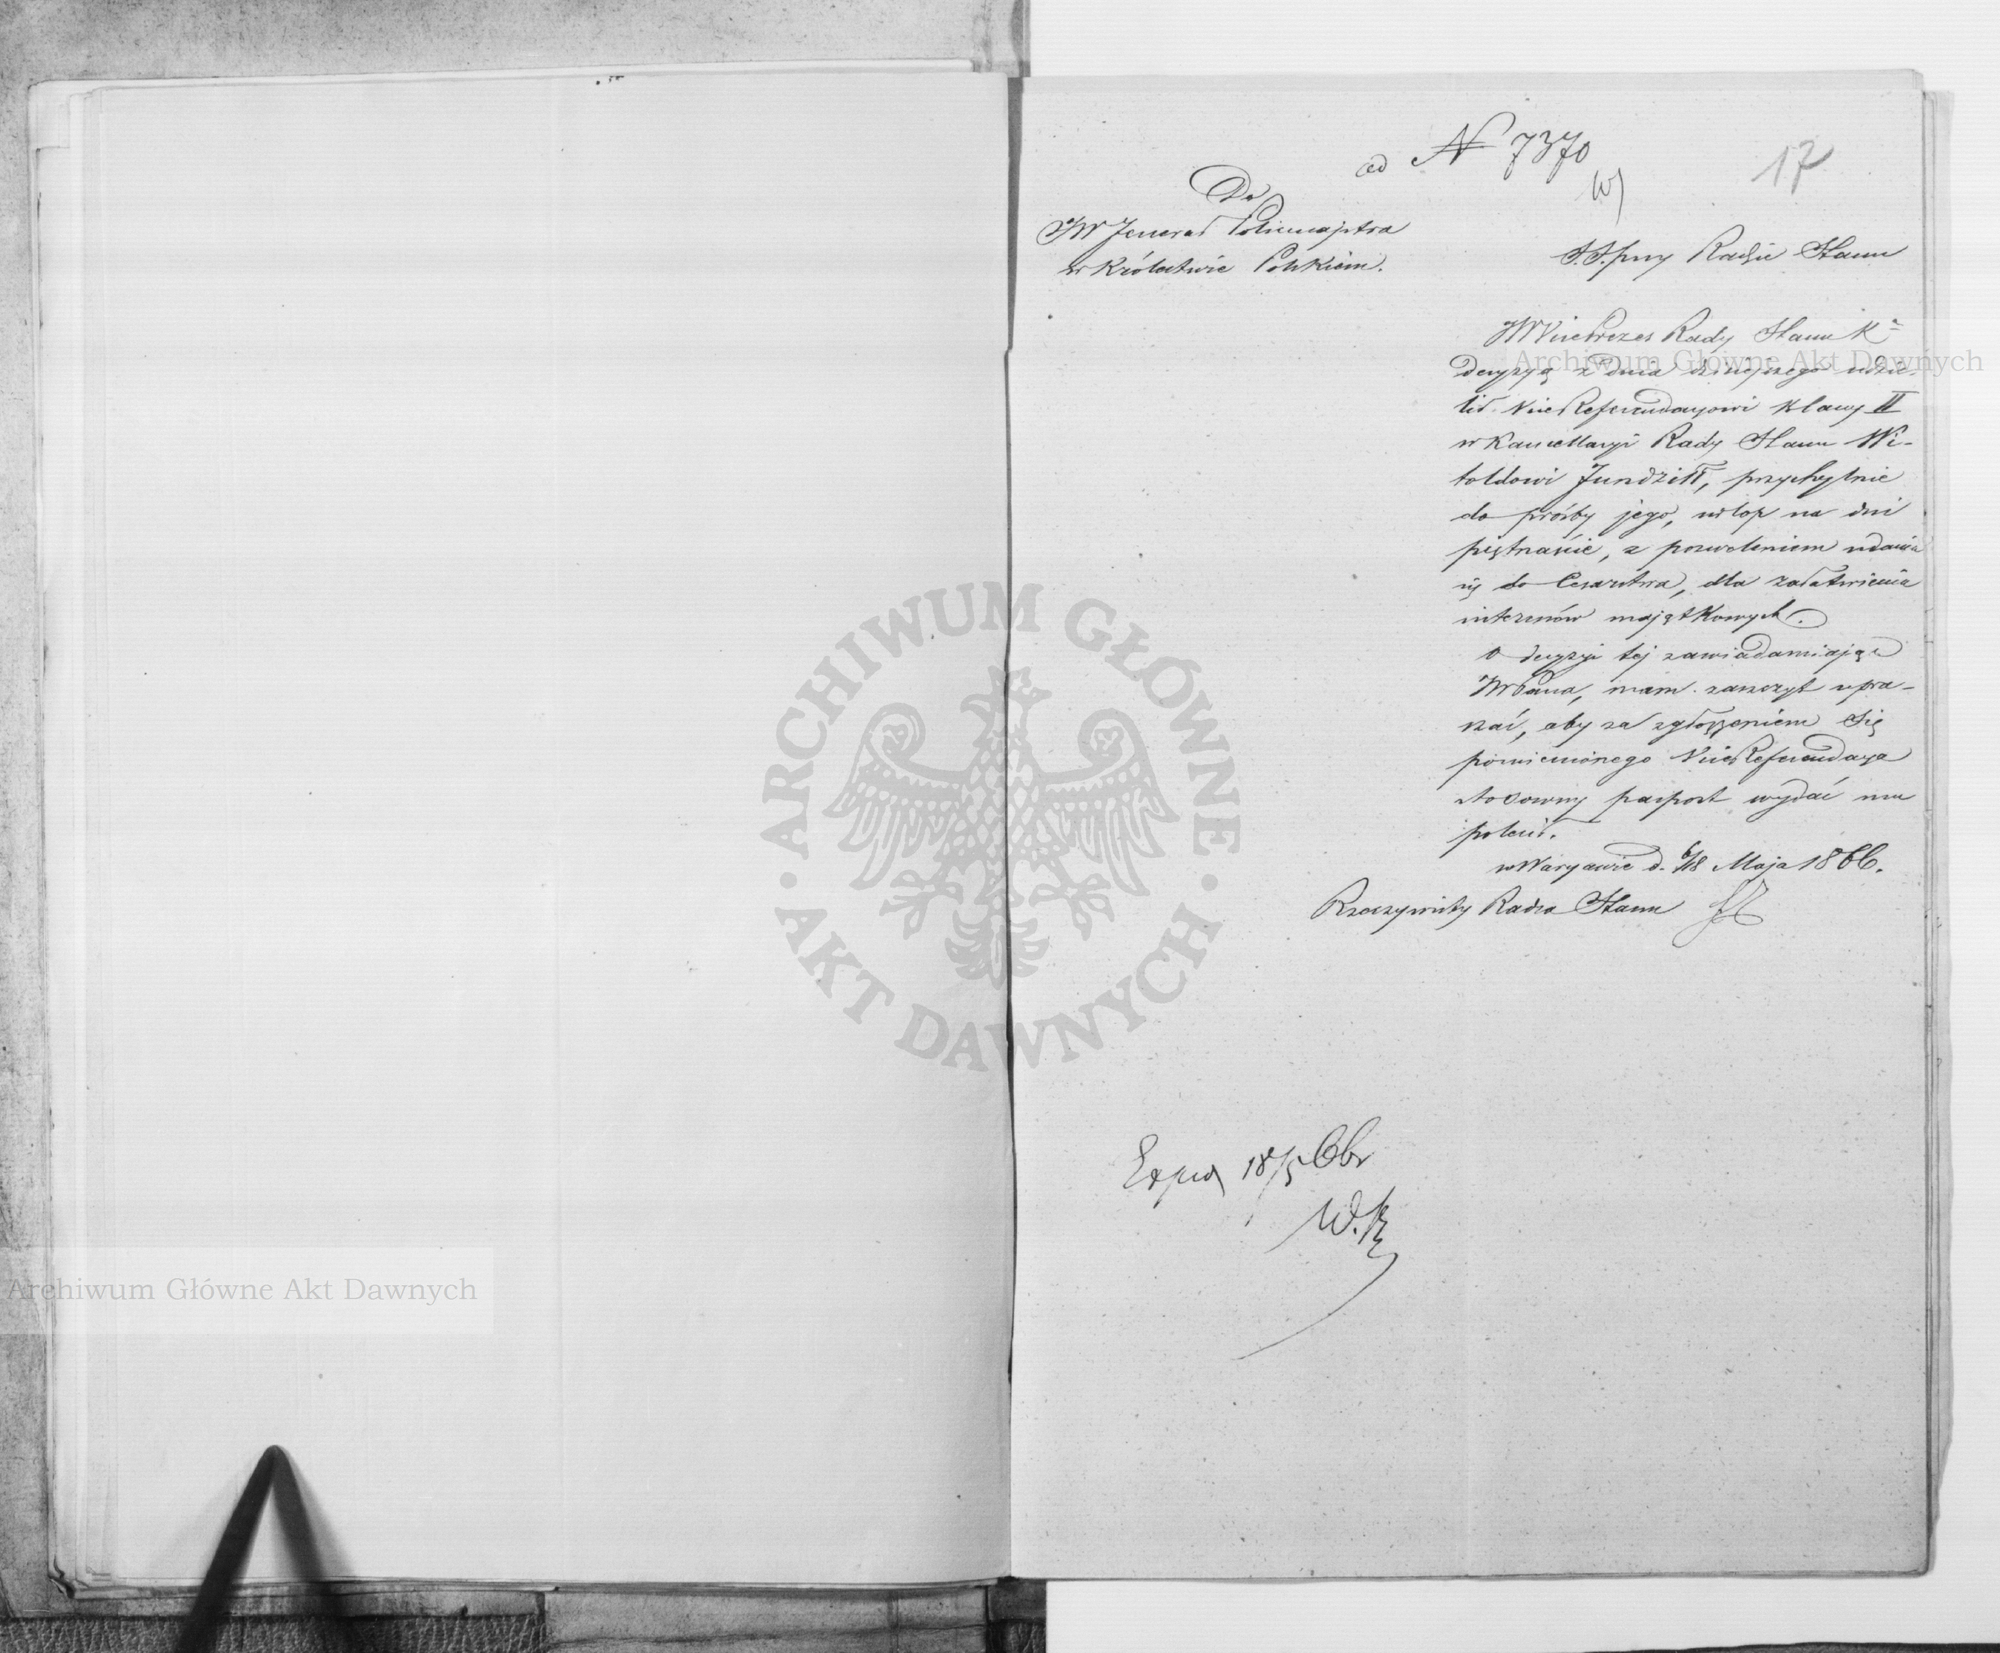 ad N 7370
W)
17
Do
JW Jenerał Policmajstra
w Królestwie Polskiem.
S. S. przy Radzie Stanu
JW Vice Prezes Rady Stanu K
decyzyą z dnia dzisiejszego udzie-
lił Vice Referendarzowi klassy II
w Kancellaryi Rady Stanu Wi-
toldowi Jundziłł, przychylnie
do prośby jego, urlop na dni
piętnaście, z pozwoleniem udania
się do Cesarstwa, dla załatwienia
interesów majątkowych.
O decyzyi tej zawiadamiając
JW Pana, mam zaszczyt upra-
szać, aby za zgłoszeniem się
pomienionego Vice Referendarza
stosowny paszport wydać mu
polecił.
w Warszawie d. 6/18 Maja 1866.
Rzeczywisty Radca Stanu
Exped 18/5 Obr
W. R
Archiwum Główne Akt Dawnych
ARCHIWUM GŁÓWNE · AKT DAWNYCH ·
Archiwum Główne Akt Dawnych